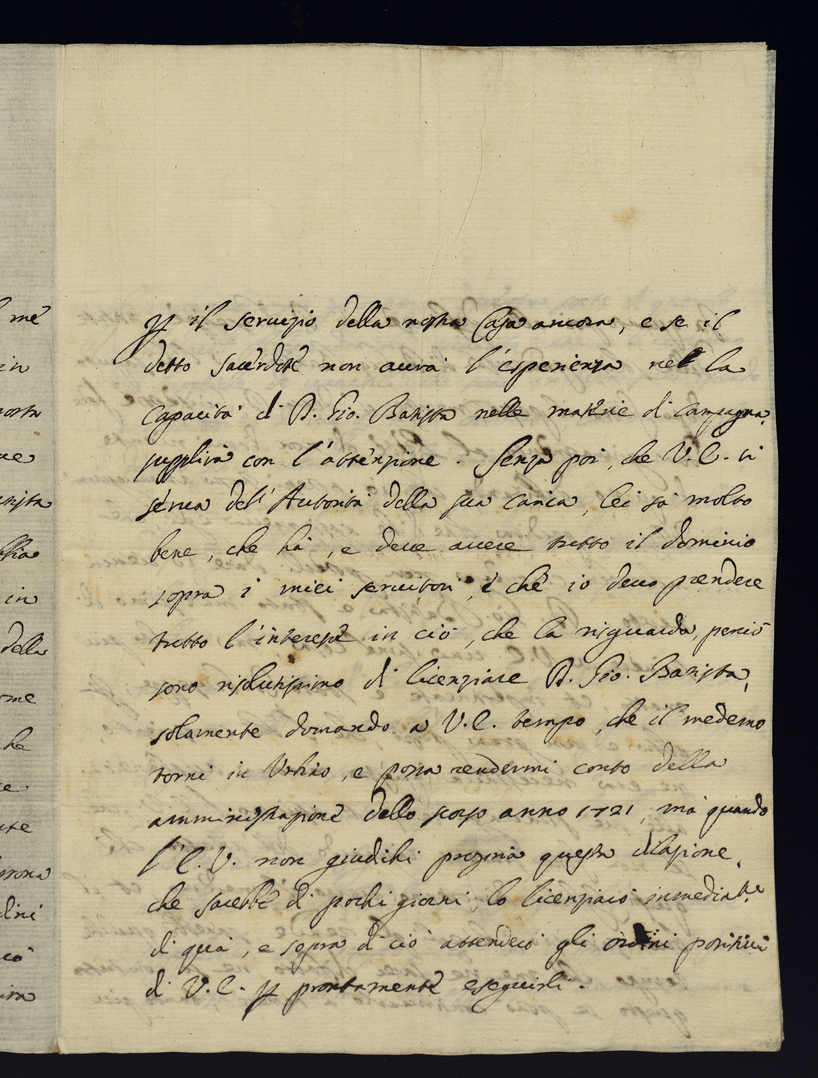 me
in
ꝑ il servizio della nostra Casa ancora, e se il
detto sacerdote non averà l'esperienza nel la
capacità di D. Gio. Batista nelle materie di campagna,
supplirà con l'attenzione. Senza poi, che V.E. si
serva del'Autorità della sua carica, lei sà molto
bene, che hà, e deve avere tutto il dominio
sopra i miei servitori, e che io devo prendere
tutto l'interesse in ciò, che la riguarda, perciò
della
sono risolutissimo di licenziare D. Gio. Batista,
solamente domando a V.E. tempo, che il medemo
he
torni in Urbino, e possa rendermi conto della
amministrazione dello scorso anno 1721, mà quando
l'E.V. non giudichi propria questa dilazione,
che sarebbe di pochi giorni, lo licenziarò immediat.e
di quà, e sopra di ciò attenderò gli ordini positivi
di V.E. ꝑ prontamente eseguirli.